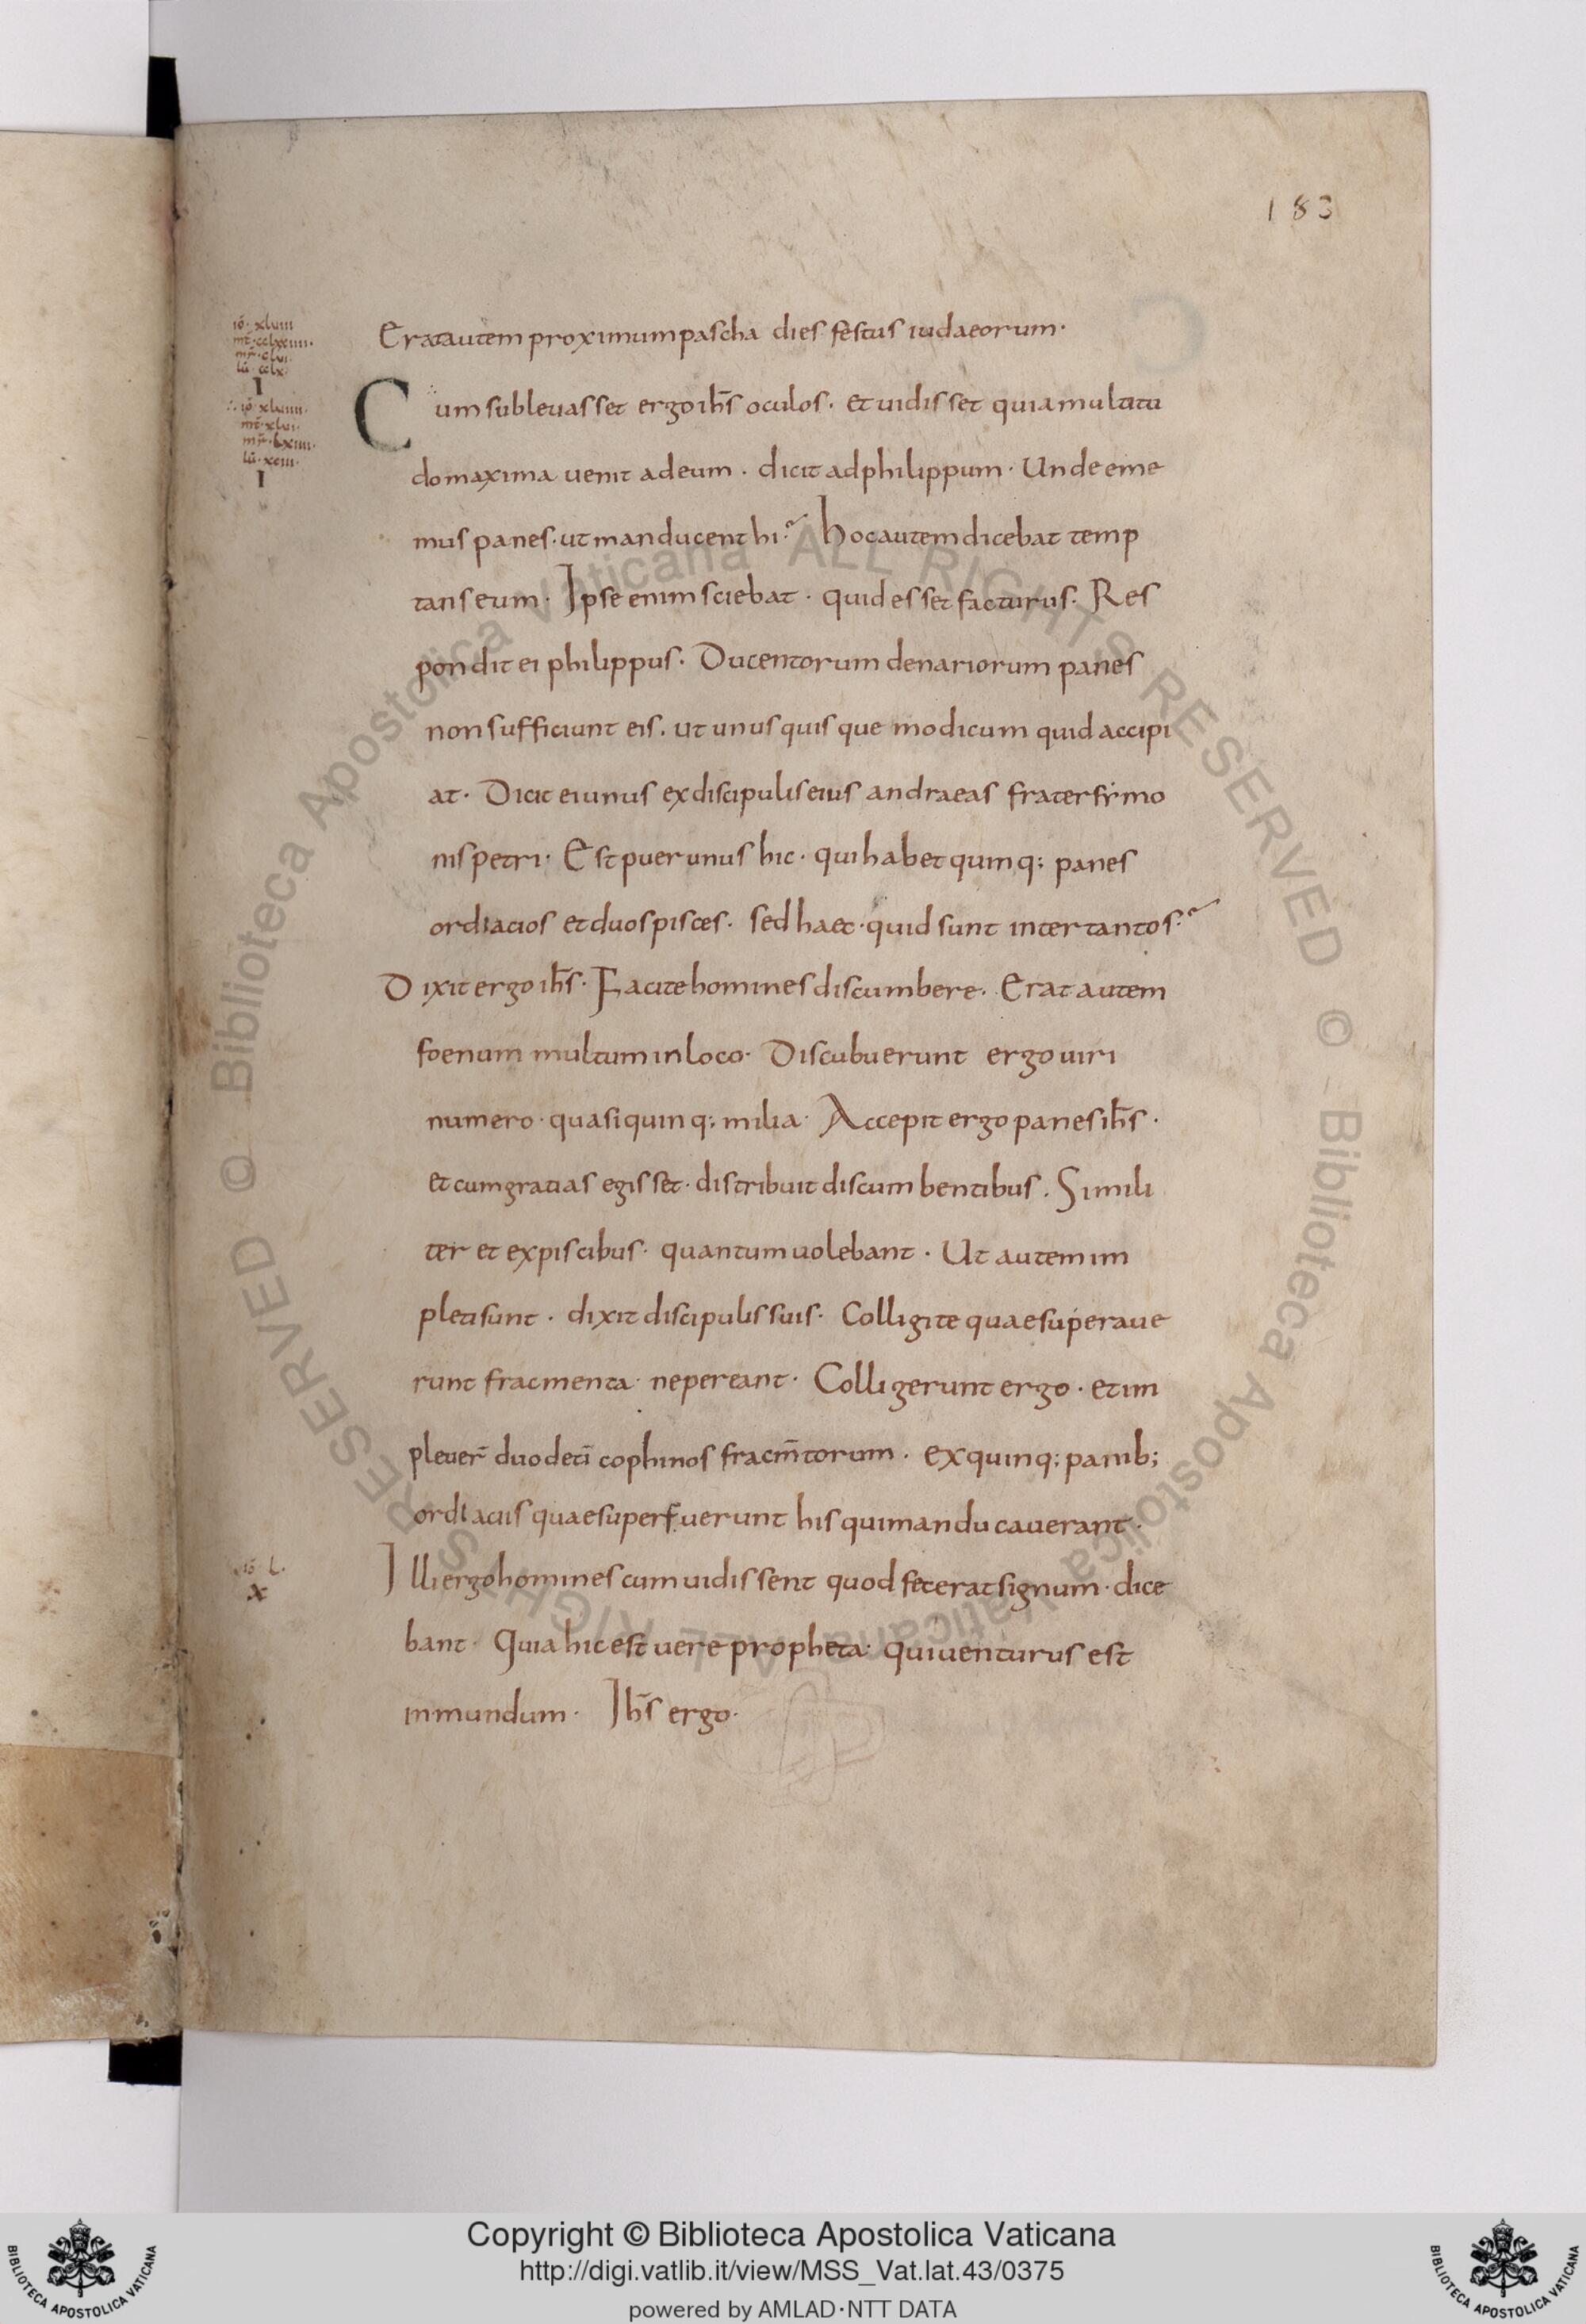 183
iō· xluiii
mt̄· cclxxiiii·
mr̄· clui·
lū· cclx·
I
Erat autem proximum pascha dies festus iudaeorum·
∴ iō· xluiiii·
mt̄· xlui·
mr̄· lxiiii·
lū· xciii·
I
Cum sublevasset ergo ihs̄ oculos· et vidisset quia multitu
do maxima venit ad eum· dicit ad philippum· Unde eme
mus panes· ut manducent hi? hoc autem dicebat temp
tans eum· Ipse enim sciebat· quid esset facturus· Res
pondit ei philippus· Ducentorum denariorum panes
non sufficiunt eis· ut unusquisque modicum quid accipi
at· Dicit ei unus ex discipulis eius andraeas frater simo
nis petri· Est puer unus hic· qui habet quinq; panes
ordiacios et duos pisces· sed haec· quid sunt inter tantos?
Dixit ergo ihs̄· Facite homines discumbere· Erat autem
foenum multum in loco· Discubuerunt ergo viri
numero· quasi quinq; milia· Accepit ergo panes ihs̄·
et cum gratias egisset· distribuit discumbentibus· Simili
ter et ex piscibus· quantum volebant· Ut autem im
pleti sunt· dixit discipulis suis· Colligite quae superave
runt fracmenta· ne pereant· Colligerunt ergo· et im
plever̄ duodeci̅ cophinos fracm̄torum· ex quinq; panib;
ordiaciis quae superfuerunt his qui manducaverant·
iō L·
x
Illi ergo homines cum vidissent quod fecerat signum· dice
bant· Quia hic est vere propheta· qui venturus est
in mundum· Ihs̄ ergo·
© Biblioteca Apostolica Vaticana ALL RIGHTS RESERVED
© Biblioteca Apostolica Vaticana ALL RIGHTS RESERVED
Copyright © Biblioteca Apostolica Vaticana
http://digi.vatlib.it/view/MSS_Vat.lat.43/0375
powered by AMLAD·NTT DATA
BIBLIOTECA APOSTOLICA VATICANA
BIBLIOTECA APOSTOLICA VATICANA